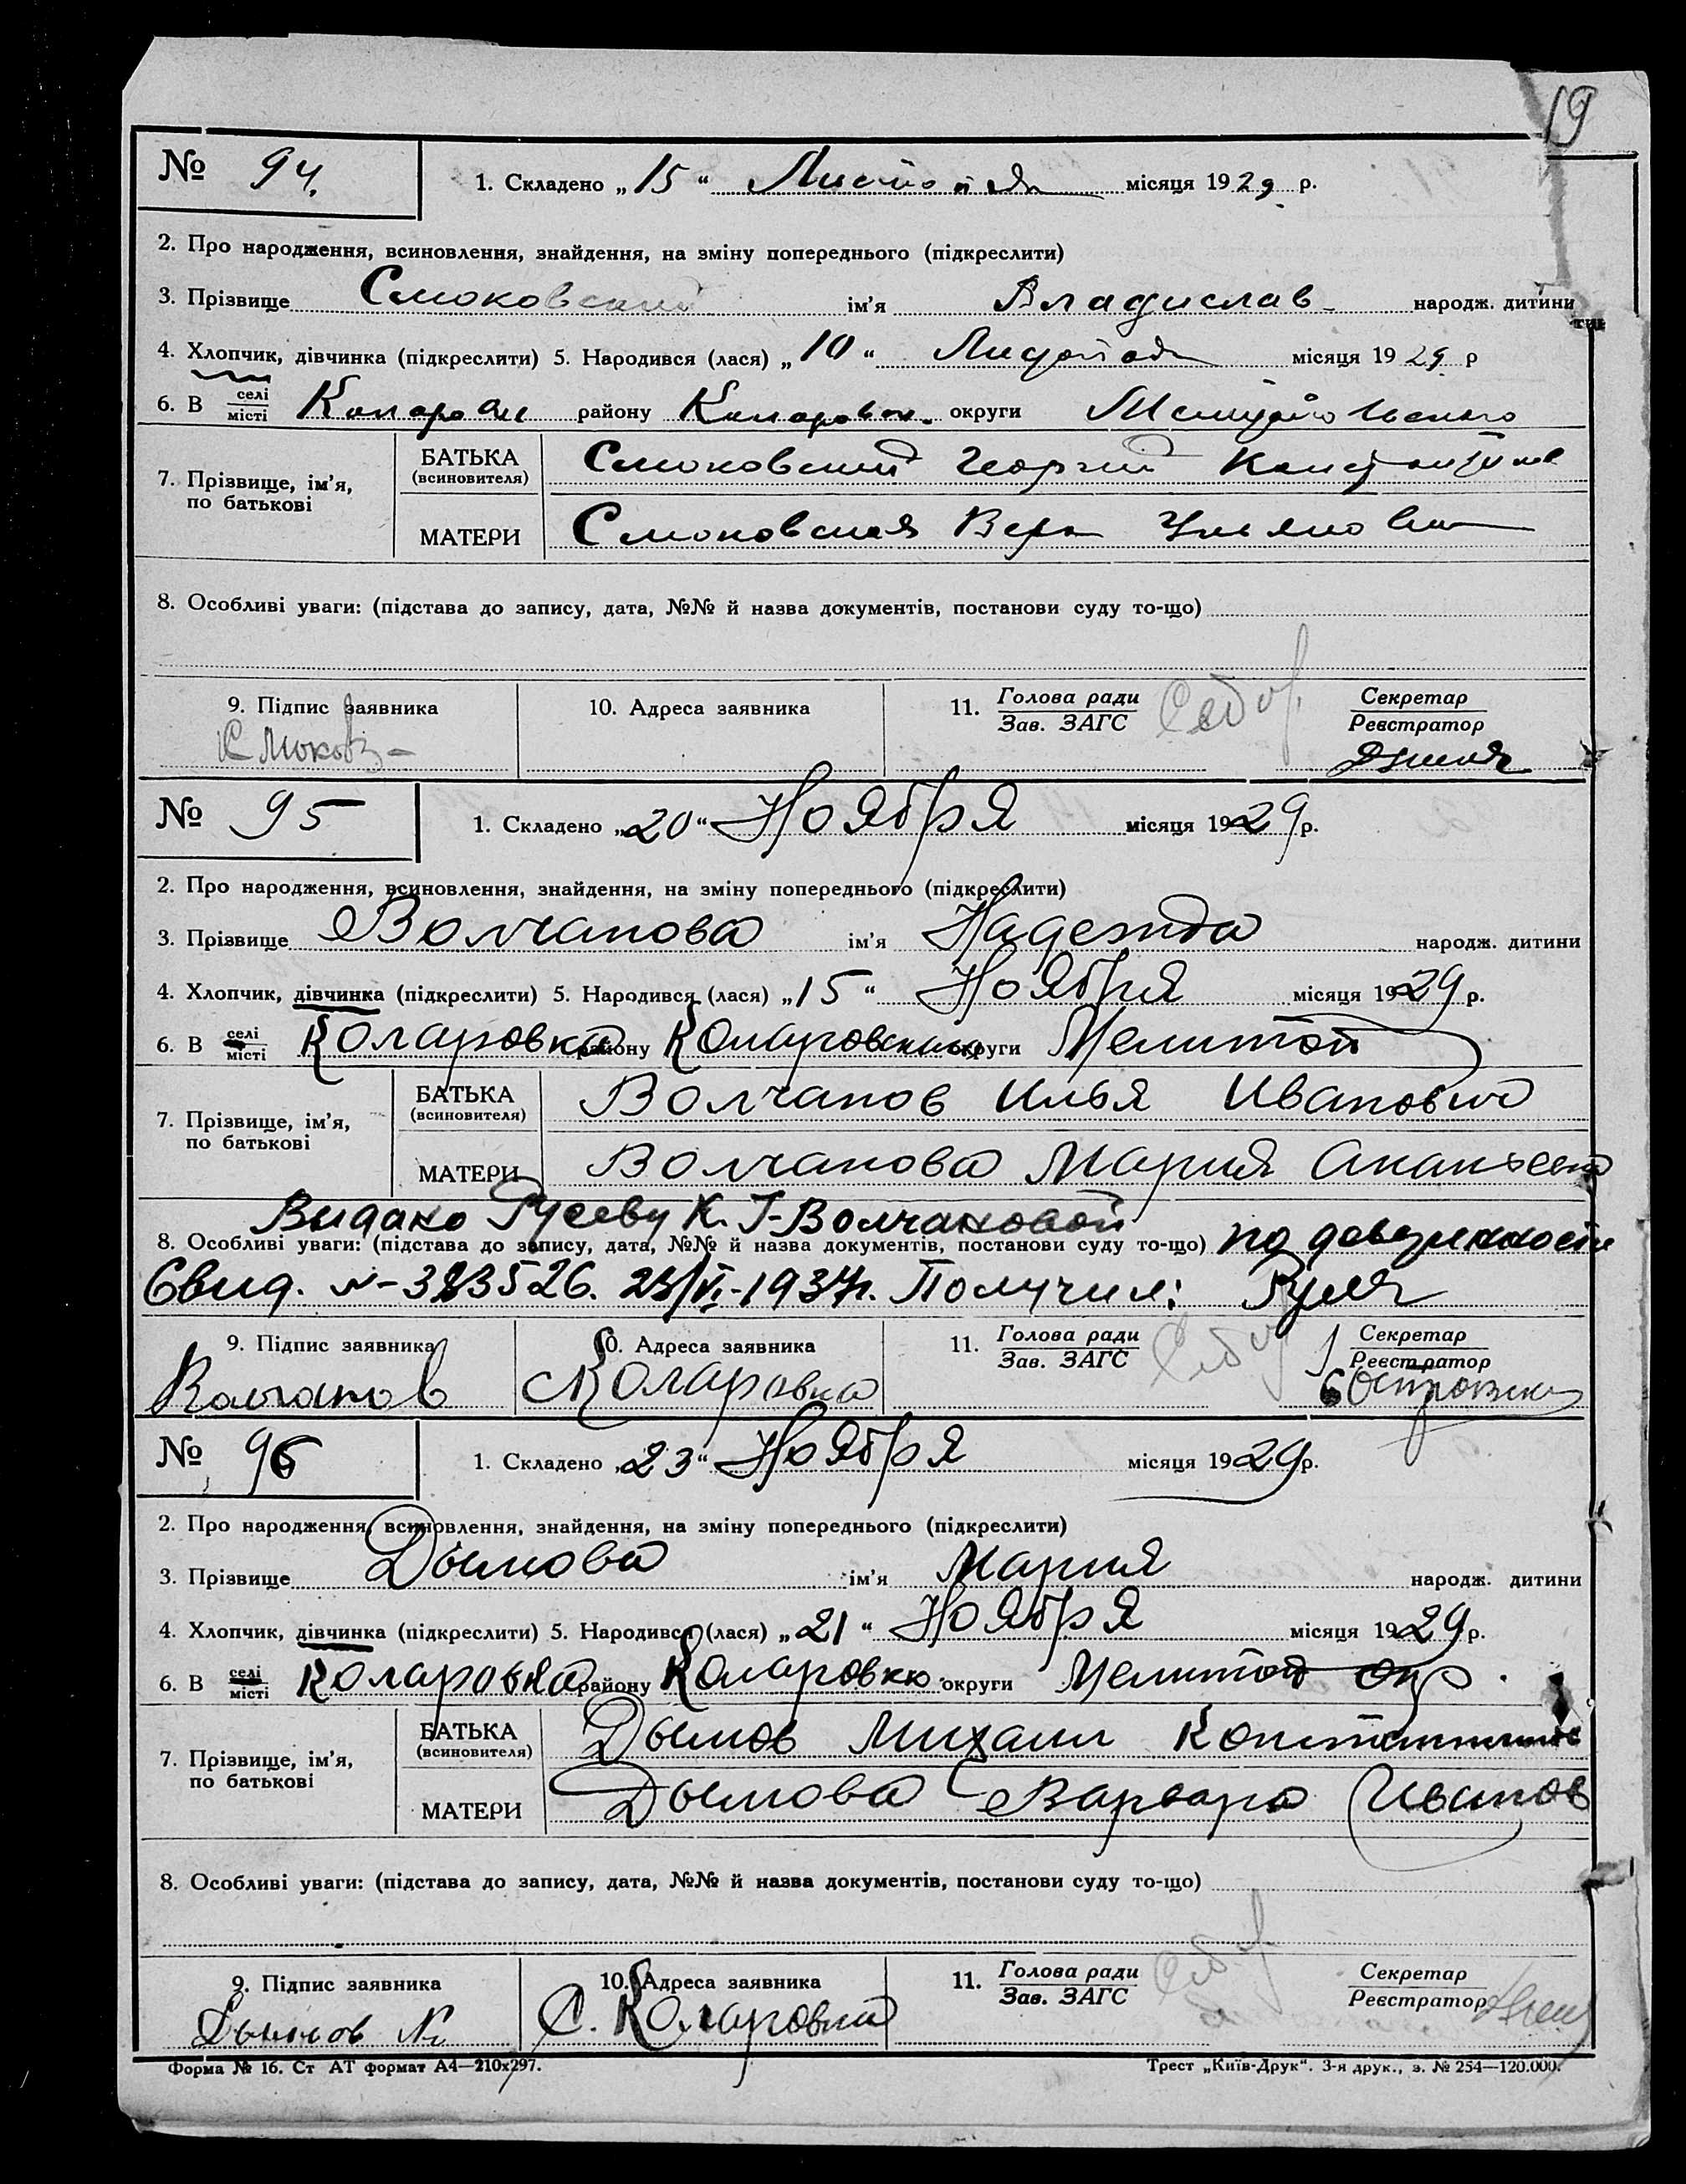 19
№ 94. 1. Складено „15“ Листопада місяця 1929 р.
2. Про народження, всиновлення, знайдення, на зміну попереднього (підкреслити)
3. Прізвище Смоковский ім’я Владислав народж. дитини
4. Хлопчик, дівчинка (підкреслити) 5. Народився (лася) „10“ Листопада місяця 1929 р
6. В селі місті району округи
7. Прізвище, ім’я, по батькові
БАТЬКА (всиновителя) Смоковский Георгий
МАТЕРИ Смоковская Вера
8. Особливі уваги: (підстава до запису, дата, №№ й назва документів, постанови суду то-що)
9. Підпис заявника 10. Адреса заявника 11. Голова ради Зав. ЗАГС Секретар Реєстратор
№ 95 1. Складено „20“ Ноября місяця 1929 р.
2. Про народження, всиновлення, знайдення, на зміну попереднього (підкреслити)
3. Прізвище Волчанова ім’я Надежда народж. дитини
4. Хлопчик, дівчинка (підкреслити) 5. Народився (лася) „15“ Ноября місяця 1929 р.
6. В селі місті Коларовка району округи Мелитоп
7. Прізвище, ім’я, по батькові
БАТЬКА (всиновителя) Волчанов Илья Иванович
МАТЕРИ Волчанова Мария
Видано Гусеву К. Г-Волчановой
8. Особливі уваги: (підстава до запису, дата, №№ й назва документів, постанови суду то-що) по доверенности
Свид. Получил:
9. Підпис заявника 10. Адреса заявника 11. Голова ради Зав. ЗАГС Секретар Реєстратор
Волчанов Коларовка
№ 96 1. Складено „23“ Ноября місяця 1929 р.
2. Про народження, всиновлення, знайдення, на зміну попереднього (підкреслити)
3. Прізвище Дымова ім’я Мария народж. дитини
4. Хлопчик, дівчинка (підкреслити) 5. Народився (лася) „21“ Ноября місяця 1929 р.
6. В селі місті Коларовка району округи Мелитоп окр.
7. Прізвище, ім’я, по батькові
БАТЬКА (всиновителя) Дымов Михаил
МАТЕРИ Дымова Варвара Иванов
8. Особливі уваги: (підстава до запису, дата, №№ й назва документів, постанови суду то-що)
9. Підпис заявника 10. Адреса заявника 11. Голова ради Зав. ЗАГС Секретар Реєстратор
Дымов С. Коларовка
Форма № 16. Ст АТ формат А4—210х297. Трест „Київ-Друк“. 3-я друк., з. № 254—120.000.